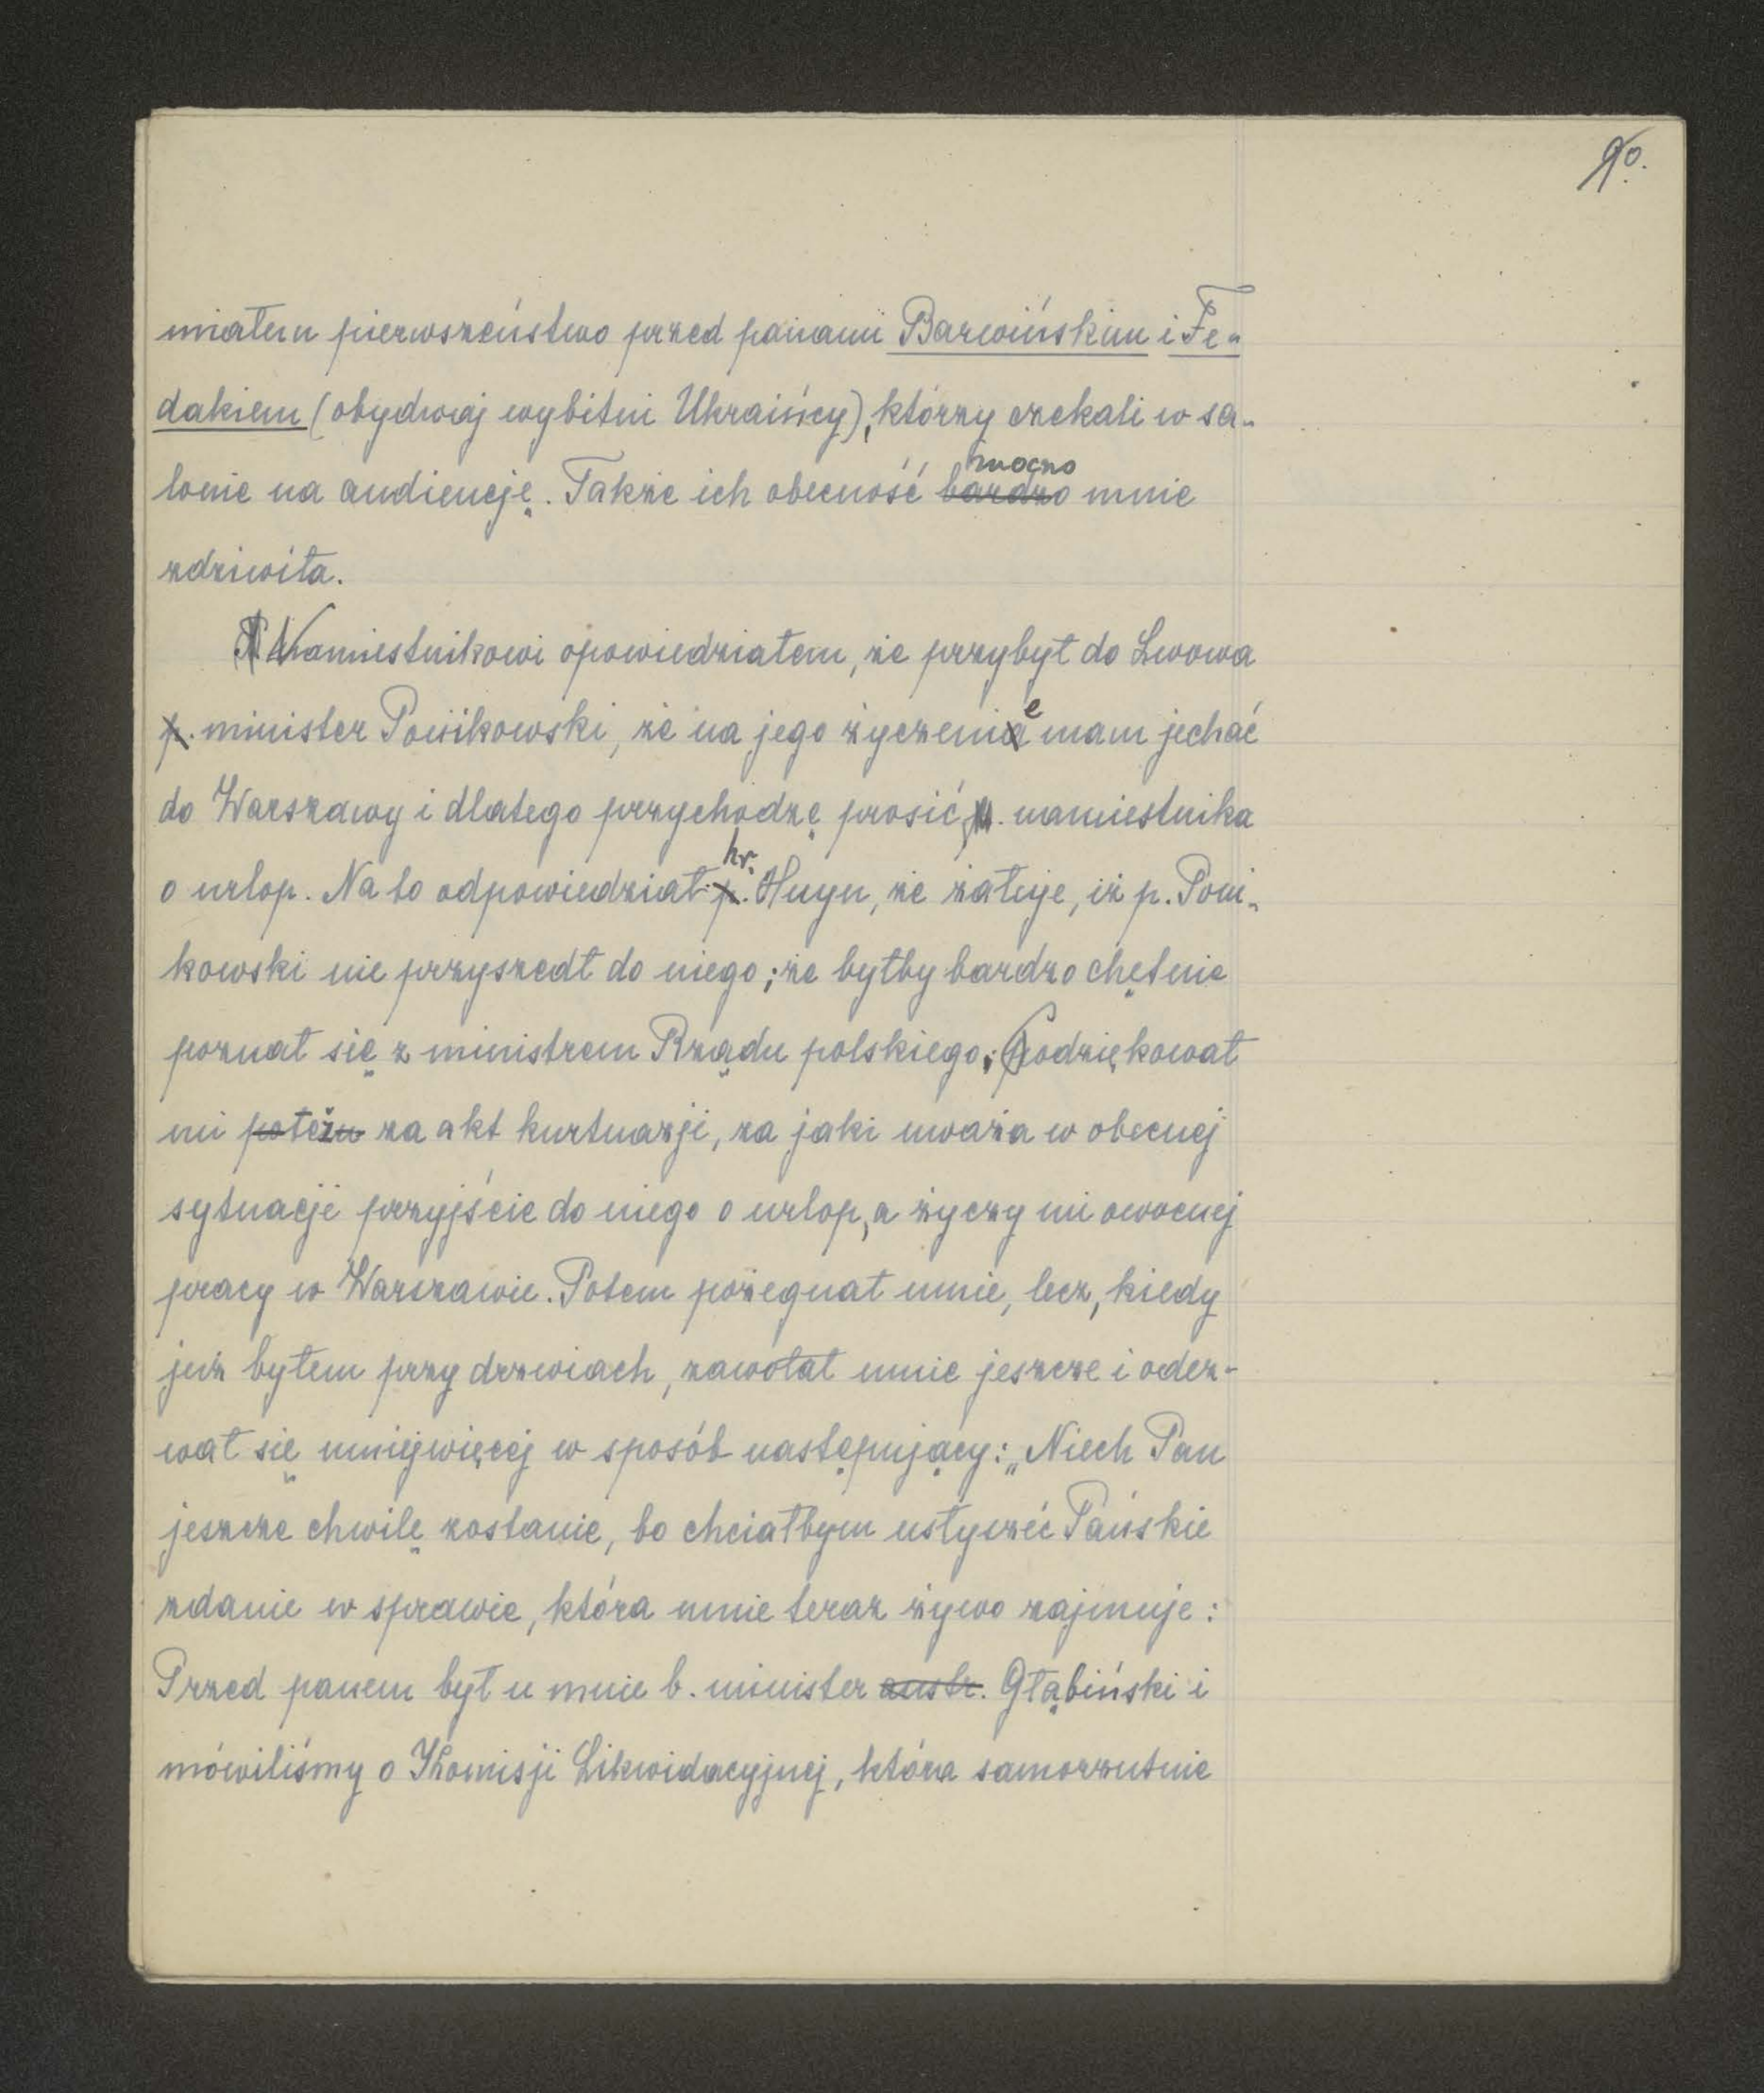 90.
miałem pierwszeństwo przed panami Barwińskim i Fe-
dakiem (obydwaj wybitni Ukraińcy), którzy czekali w sa-
lonie na audiencję. Także ich obecność bardzo mocno mnie
zdziwiła.
Namiestnikowi opowiedziałem, że przybył do Lwowa
p. minister Ponikowski, że na jego życzenie mam jechać
do Warszawy i dlatego przychodzę prosić p. namiestnika
o urlop. Na to odpowiedział p. hr. Huyn, że żałuje, iż p. Poni-
kowski nie przyszedł do niego; że byłby bardzo chętnie
poznał się z ministrem Rządu polskiego; podziękował
mi potem za akt kurtuazji, za jaki uważa w obecnej
sytuacji przyjście do niego o urlop, a życzy mi owocnej
pracy w Warszawie. Potem pożegnał mnie, lecz, kiedy
już byłem przy drzwiach, zawołał mnie jeszcze i odez-
wał się mniejwięcej w sposób następujący: „Niech Pan
jeszcze chwilę zostanie, bo chciałbym usłyszeć Pańskie
zdanie w sprawie, która mnie teraz żywo zajmuje:
Przed panem był u mnie b. minister austr. Głąbiński i
mówiliśmy o Komisji Likwidacyjnej, która samorzutnie